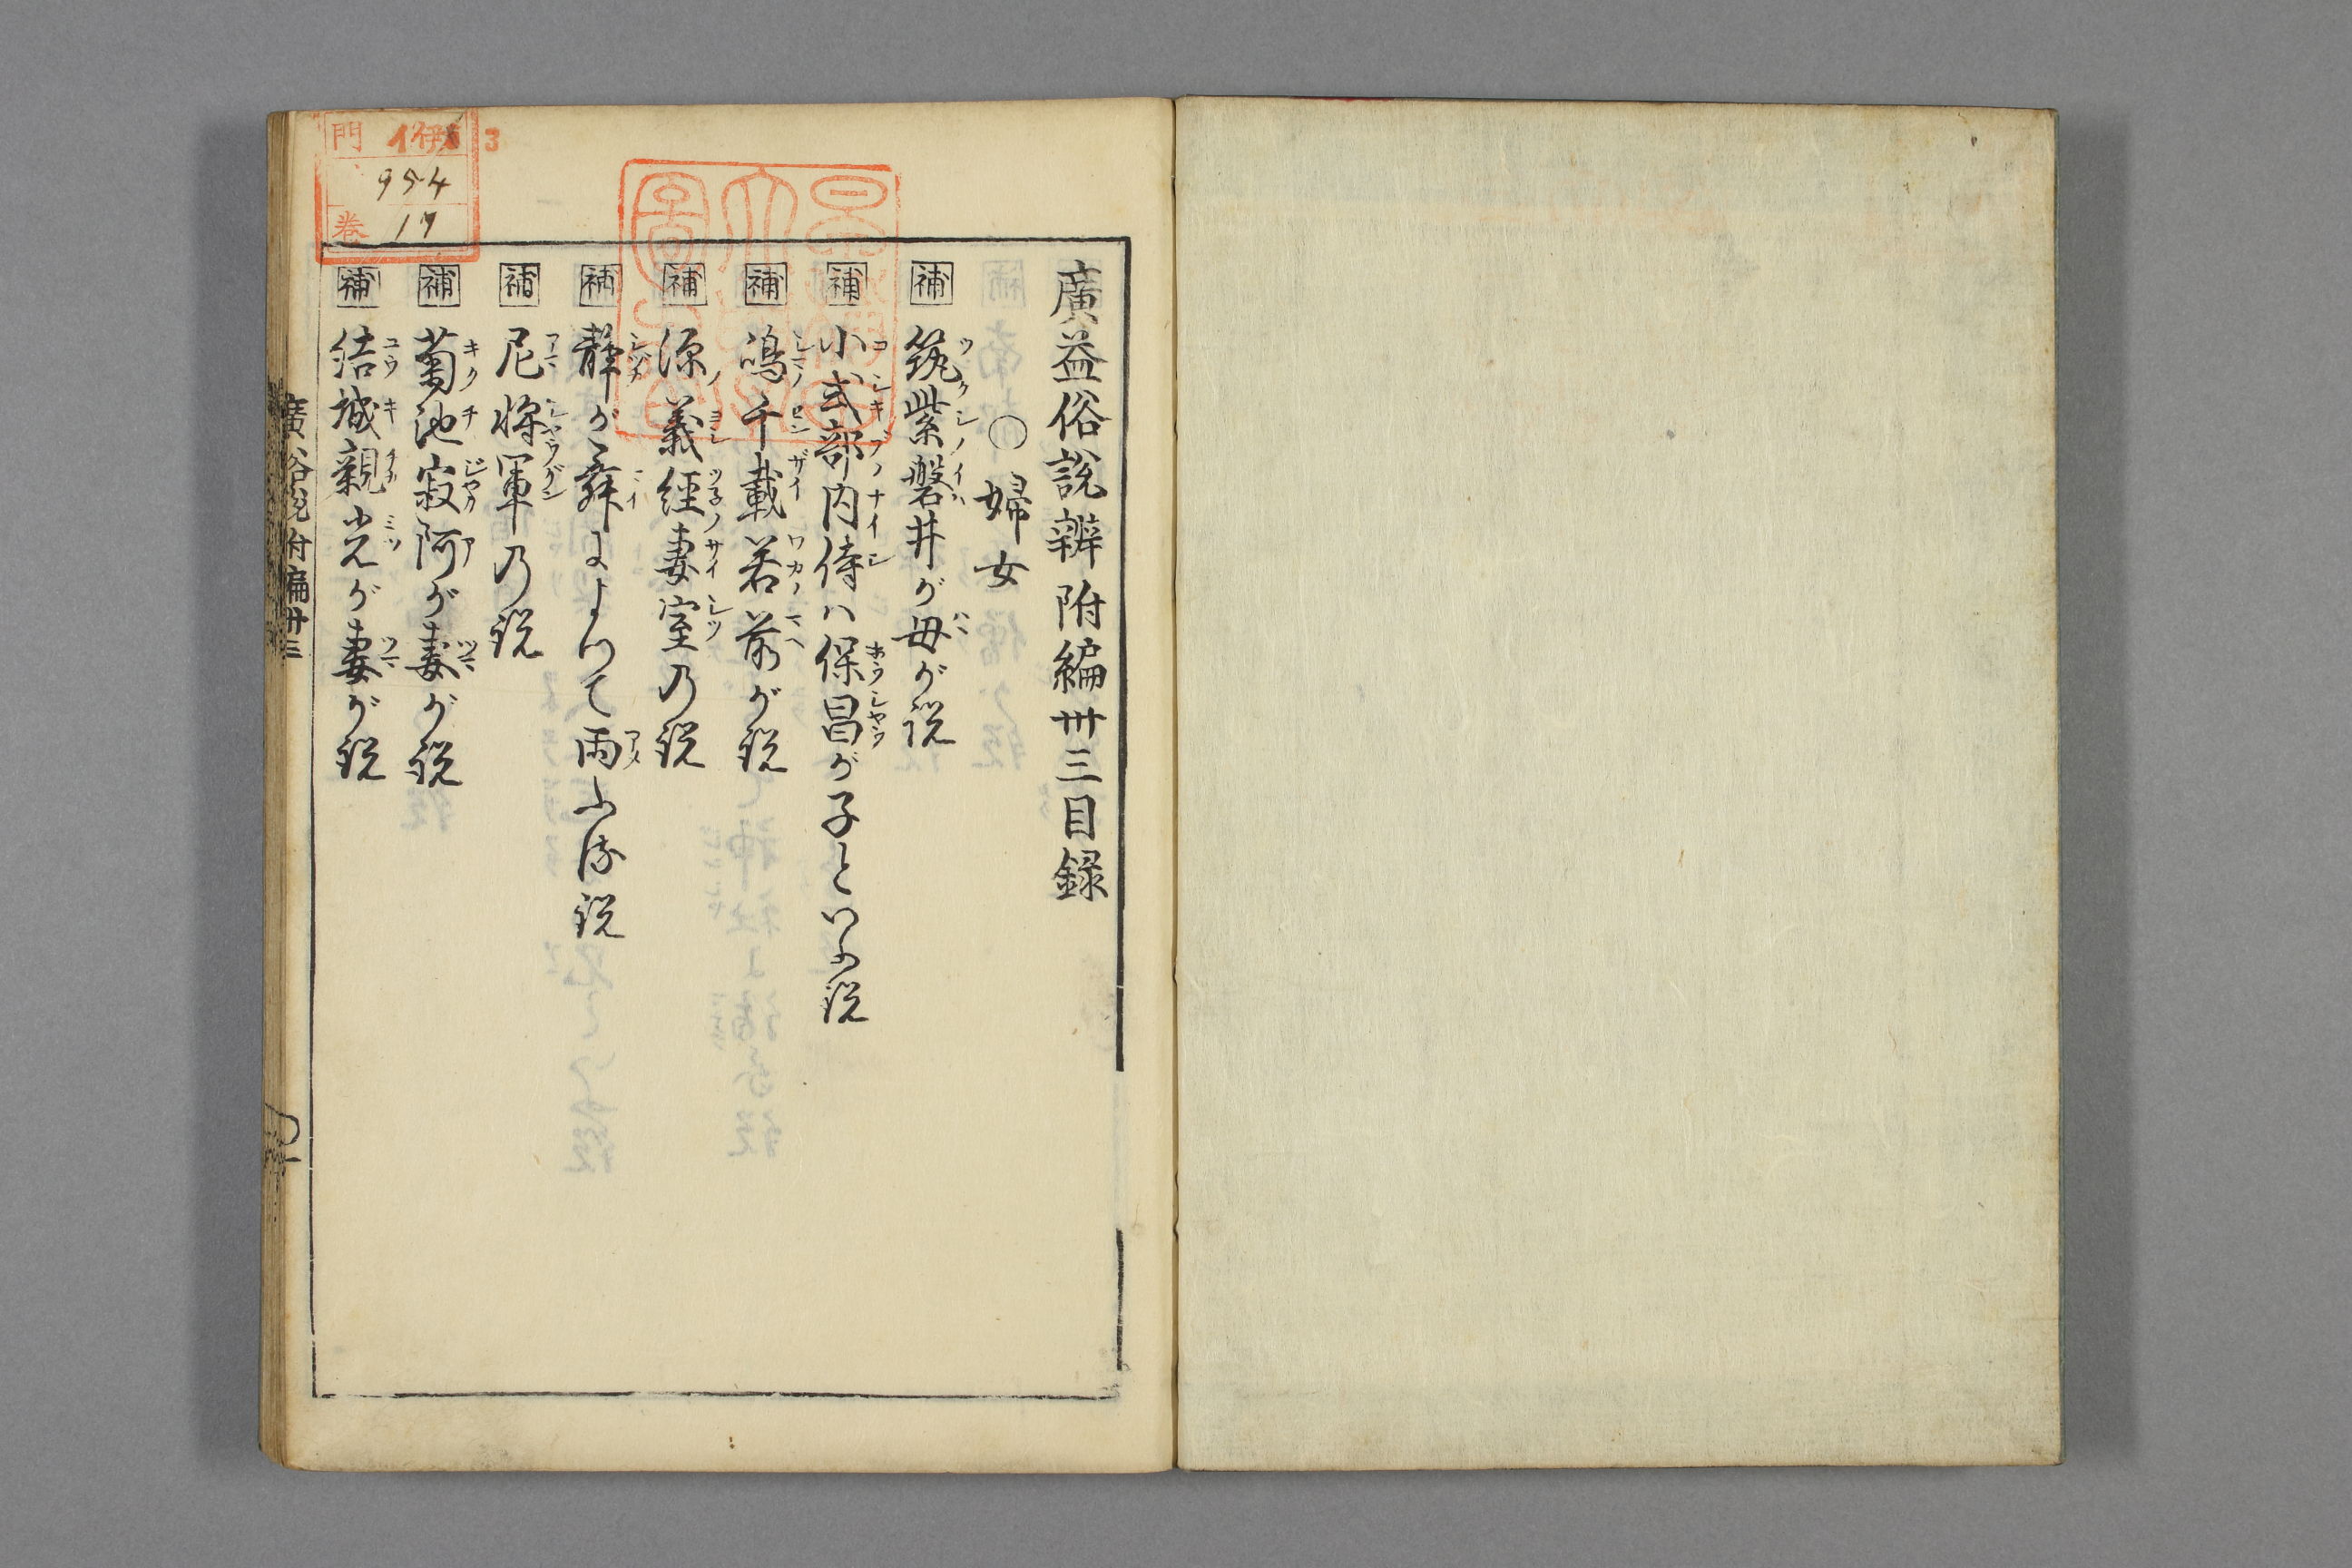 廣益俗說辨附編卅三目録
〇婦女
補 筑紫磐井が母が説
補 小式部内侍ハ保昌が子といふ説
補 嶋千載若前が説
補 源義經妻室乃説
補 静が舞によつて雨ふる説
補 尼将軍乃説
補 菊池寂阿が妻が説
補 結城親光が妻が説
廣俗説附編卅三
門 イ 3
954
卷 17